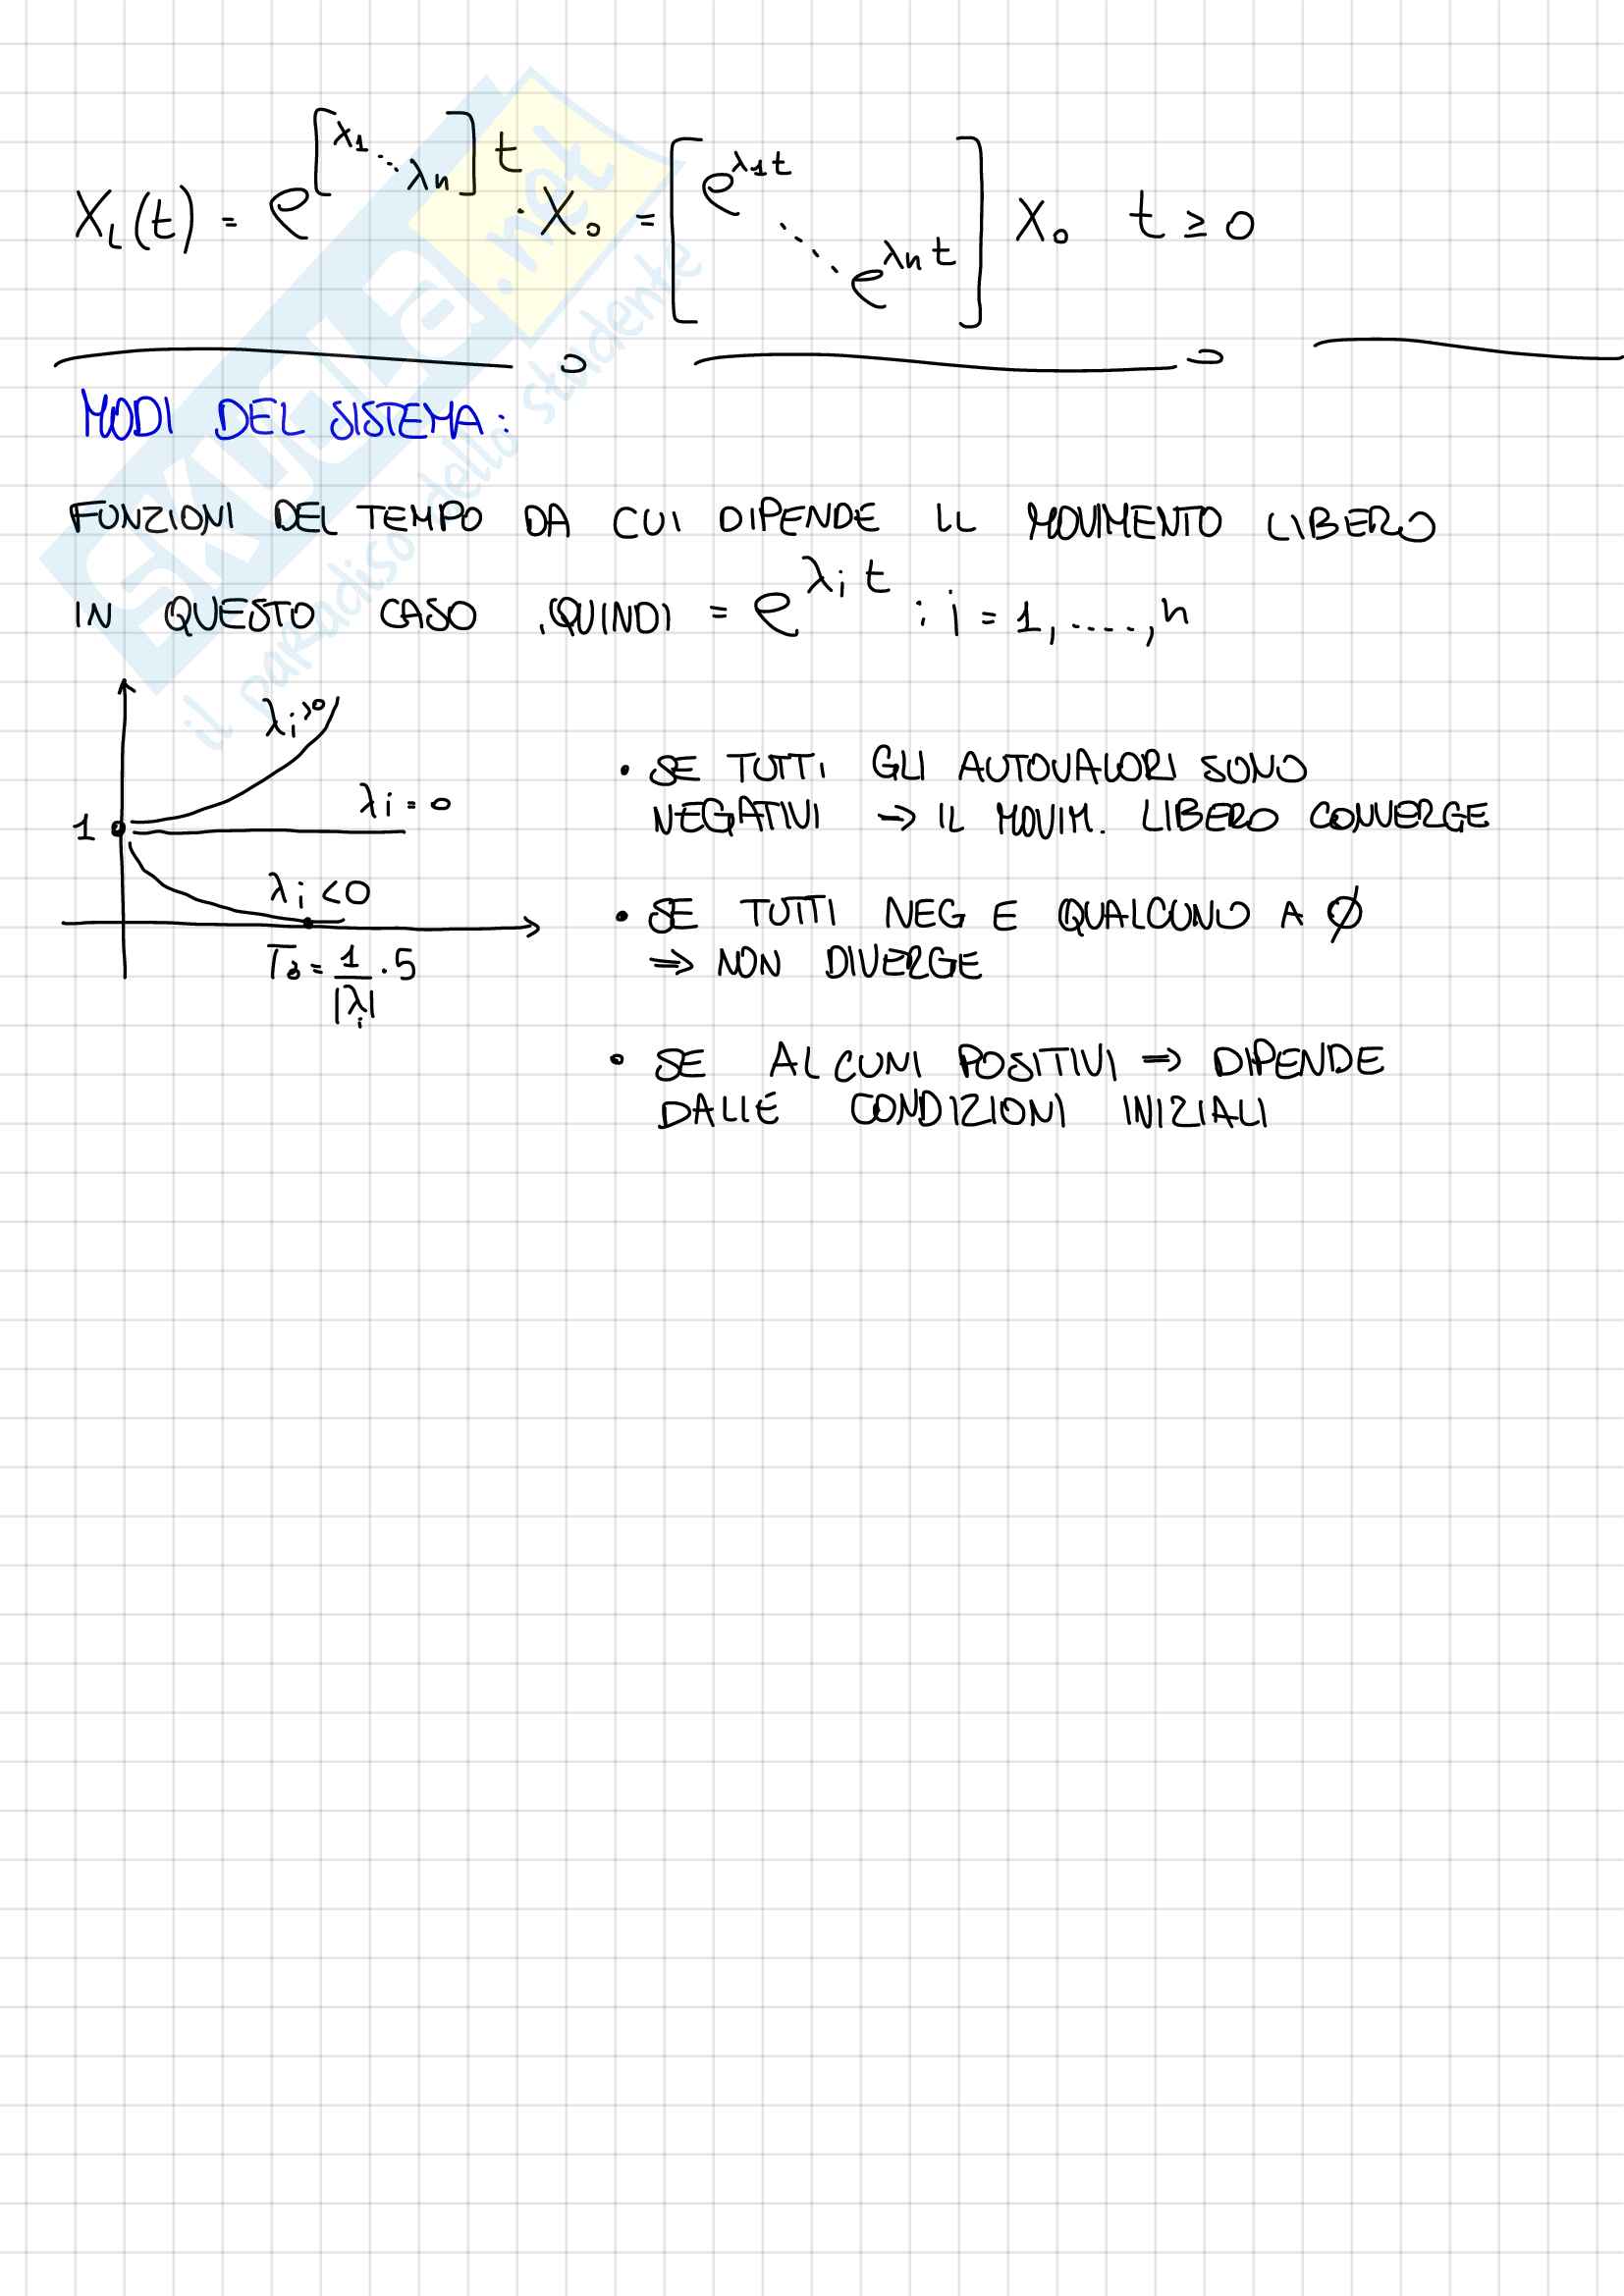 X_L(t) = e^{[λ1 ⋱ λn] t} · X₀ = [e^{λ1 t} ⋱ e^{λn t}] X₀ t ≥ 0
MODI DEL SISTEMA:
FUNZIONI DEL TEMPO DA CUI DIPENDE IL MOVIMENTO LIBERO
IN QUESTO CASO QUINDI = e^{λi t} : i = 1, ...., n
λi>0
λi = 0
1
λi < 0
Ta = 1/|λi| · 5
• SE TUTTI GLI AUTOVALORI SONO
NEGATIVI → IL MOVIM. LIBERO CONVERGE
• SE TUTTI NEG E QUALCUNO A Ø
⇒ NON DIVERGE
• SE ALCUNI POSITIVI ⇒ DIPENDE
DALLE CONDIZIONI INIZIALI
SKUOLA.net
il paradiso dello studente